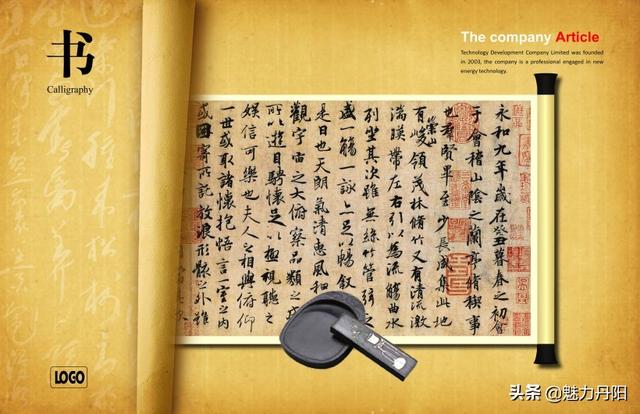 书
Calligraphy
The company Article
Technology Development Company Limited was founded
in 2003, the company is a professional engaged in new
energy technology.
永和九年歲在癸丑暮春之初會
于會稽山陰之蘭亭脩稧事
也羣賢畢至少長咸集此地
有崇山峻領茂林脩竹又有清流激
湍暎帶左右引以為流觴曲水
列坐其次雖無絲竹管弦之
盛一觴一詠亦足以暢敘
是日也天朗氣清惠風和
觀宇宙之大俯察品類之盛
所以遊目騁懷足以極視聽之
娛信可樂也夫人之相與俯仰
一世或取諸懷抱悟言一室之內
或因寄所託放浪形骸之外雖
LOGO
头条 @魅力丹阳